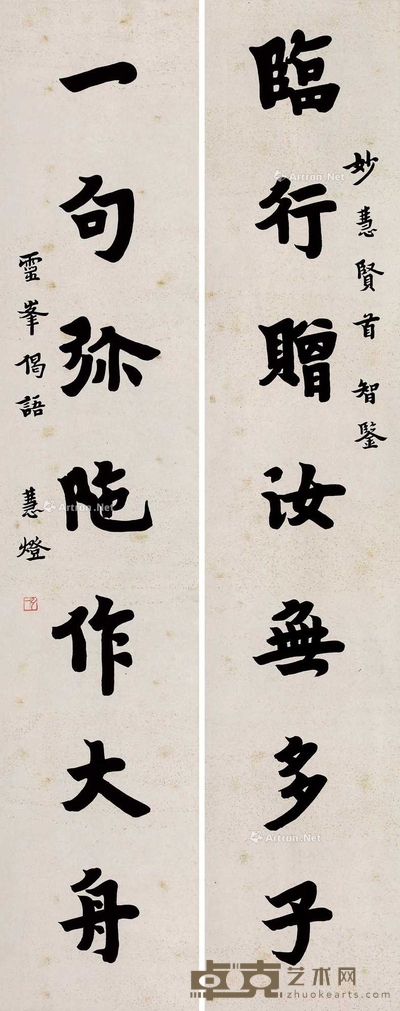 妙慧賢首 智鑒
臨行贈汝無多子
一句弥陁作大舟
靈峯偈語 慧燈
Artron.Net
Artron.Net
Artron.Net
Artron.Net
卓克艺术网
zhuokearts.com